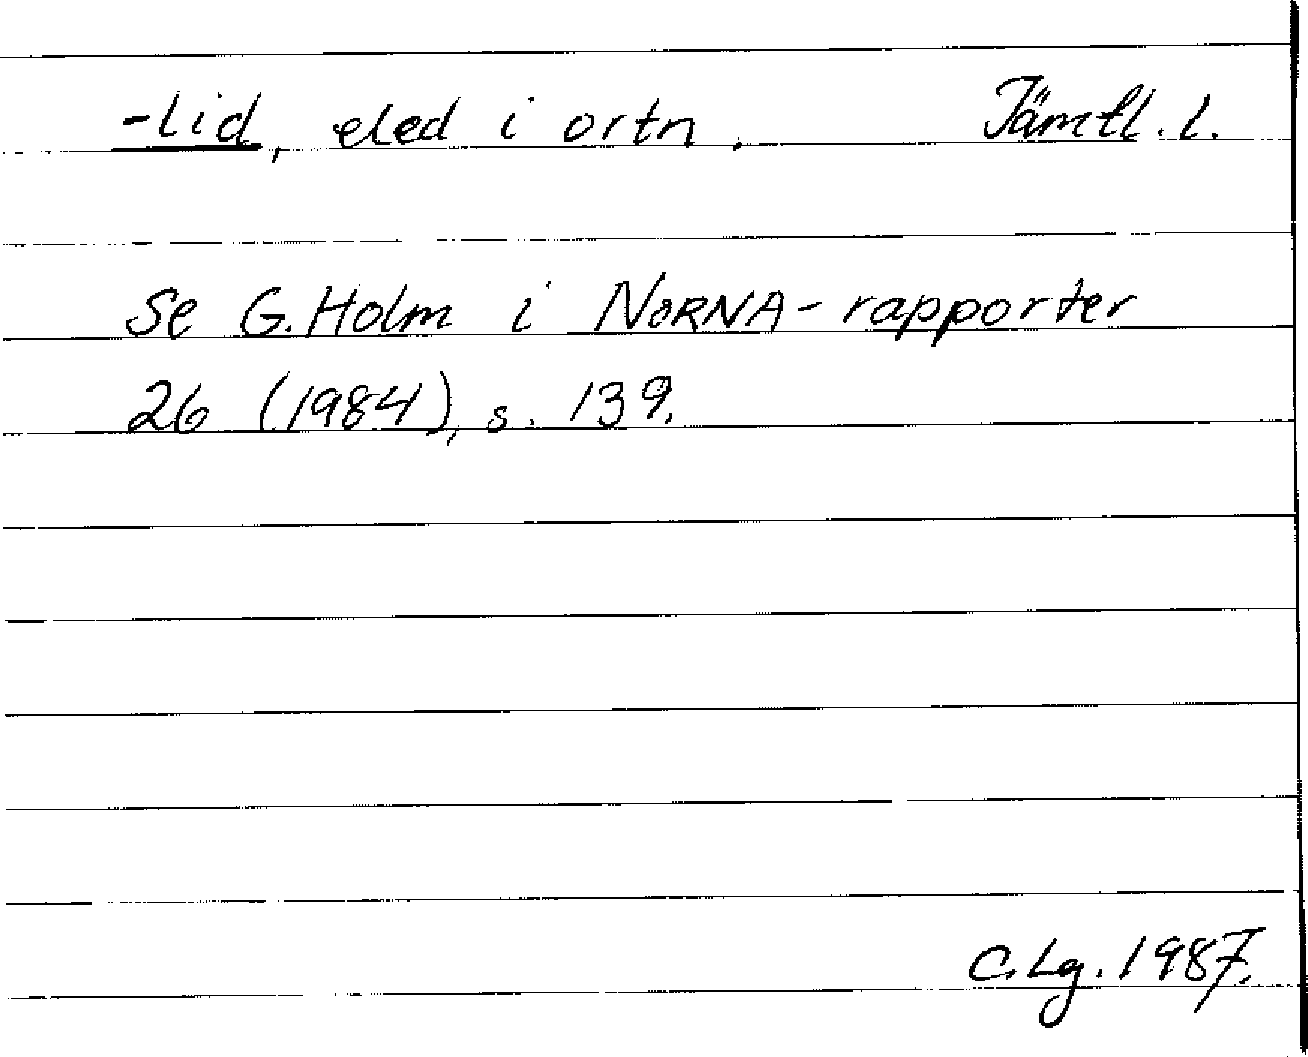 -lid, eled i ortn. Jämtl. l.
Se G. Holm i NORNA-rapporter
26 (1984), s. 139.
C. Lg. 1987.